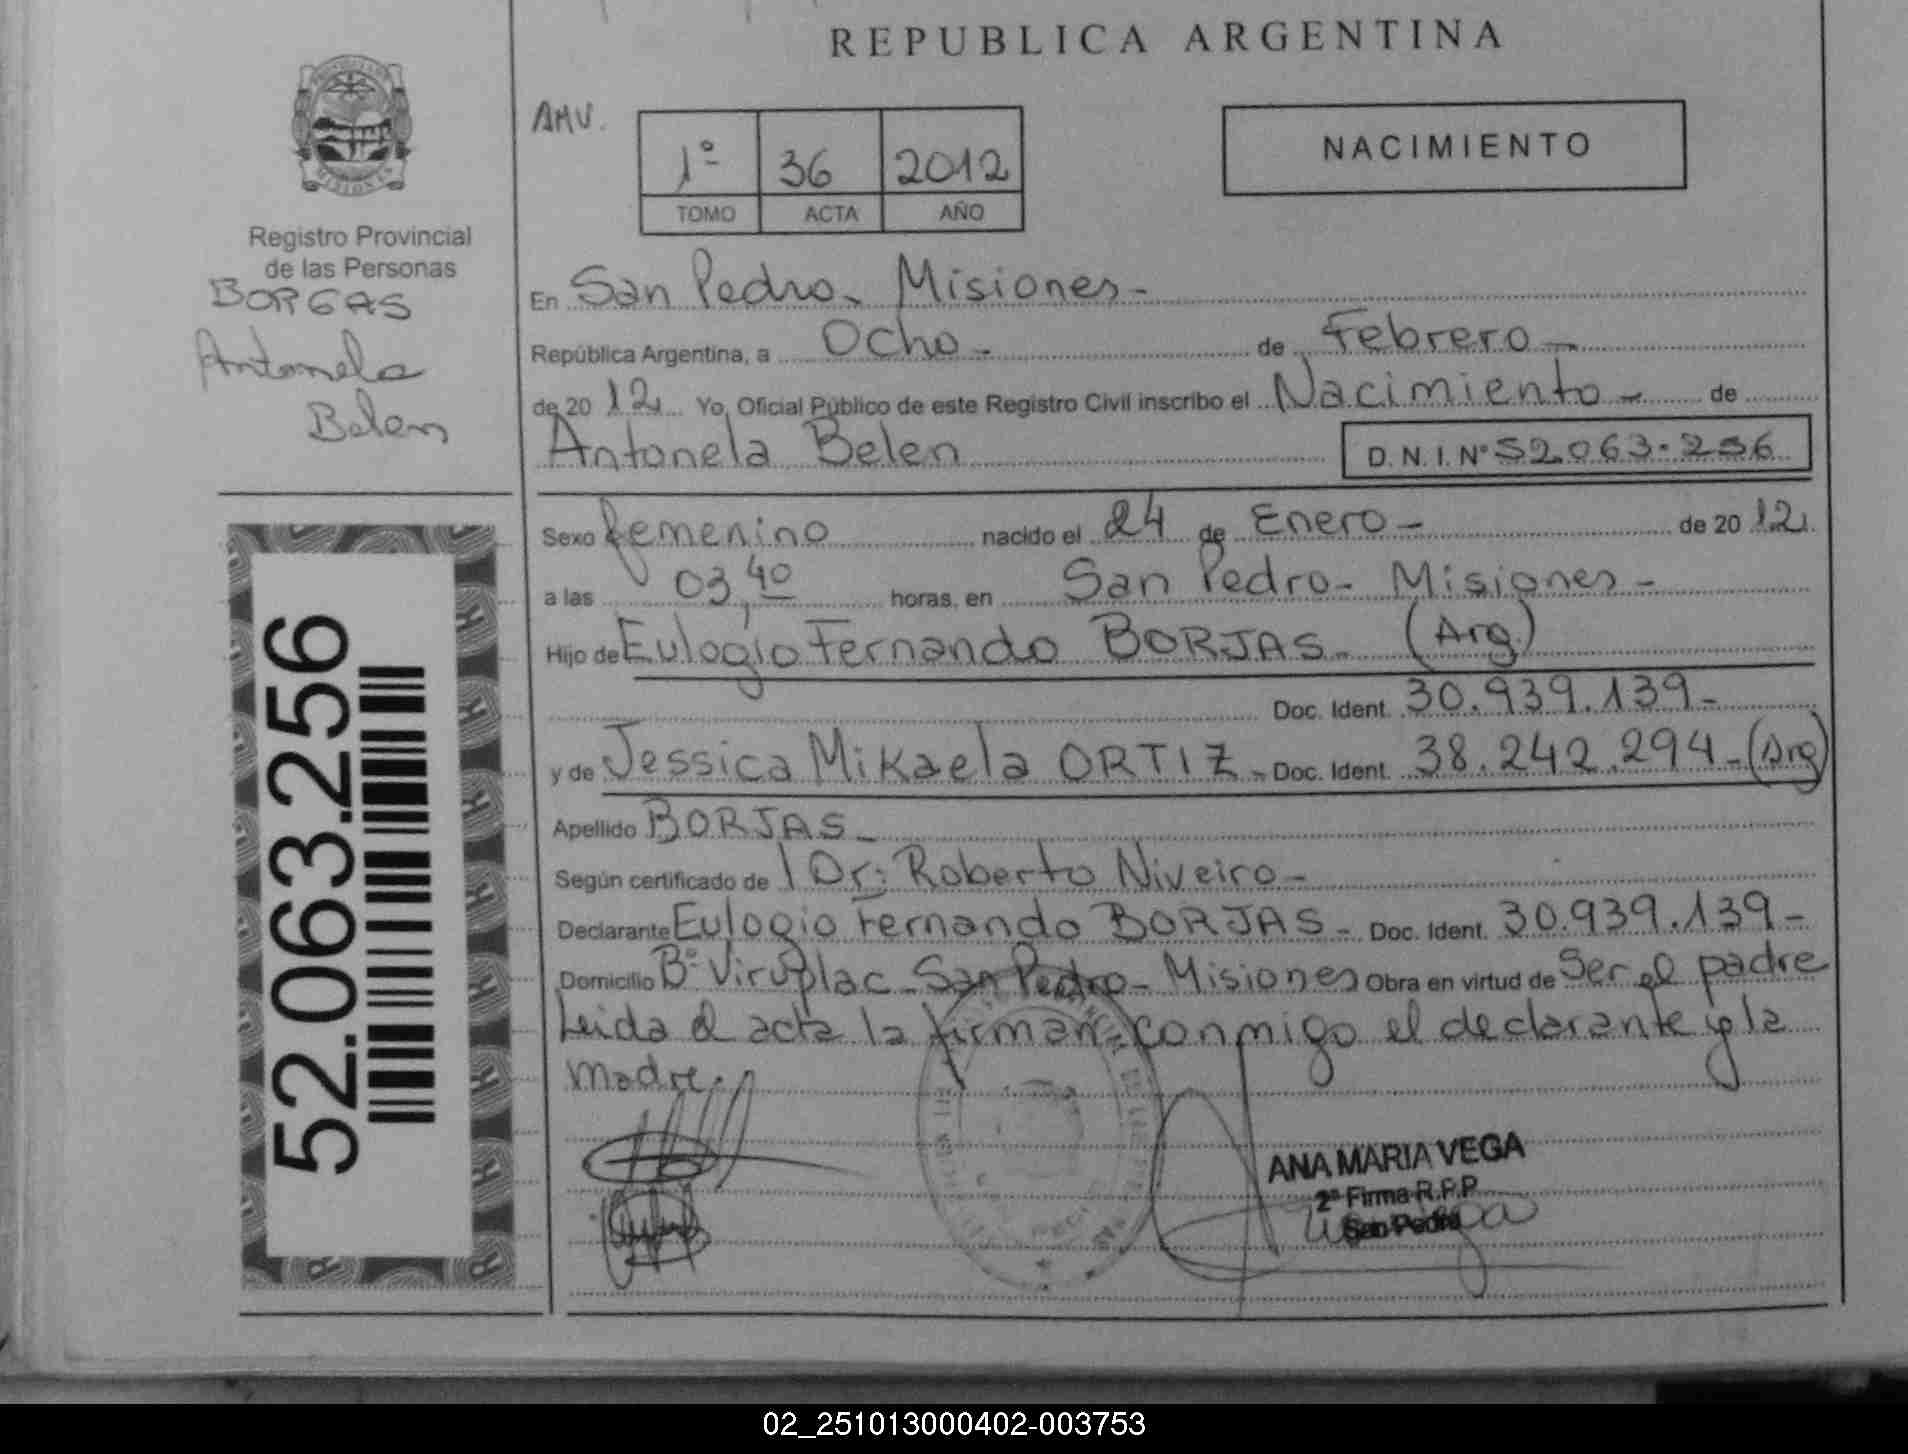 REPUBLICA ARGENTINA
AMV.
1º 36 2012
TOMO ACTA AÑO
NACIMIENTO
MISIONES
Registro Provincial
de las Personas
BORGAS
Antonela
Belen
52.063.256
En San Pedro - Misiones -
República Argentina, a Ocho - de Febrero -
de 20 12 Yo, Oficial Público de este Registro Civil inscribo el Nacimiento - de
Antonela Belen D.N.I. Nº 52.063.256
Sexo femenino nacido el 24 de Enero - de 20 12
a las 03,40 horas, en San Pedro - Misiones -
Hijo de Eulogio Fernando BORJAS - (Arg.)
Doc. Ident. 30.939.139 -
y de Jessica Mikaela ORTIZ - Doc. Ident. 38.242.294 - (Arg)
Apellido BORJAS -
Según certificado de Dr: Roberto Niveiro -
Declarante Eulogio Fernando BORJAS - Doc. Ident. 30.939.139 -
Domicilio Bº Viruplac - San Pedro - Misiones Obra en virtud de Ser el padre
Leida el acta la firman conmigo el declarante y la
madre.
ANA MARIA VEGA
2ª Firma R.P.P.
San Pedro
02_251013000402-003753